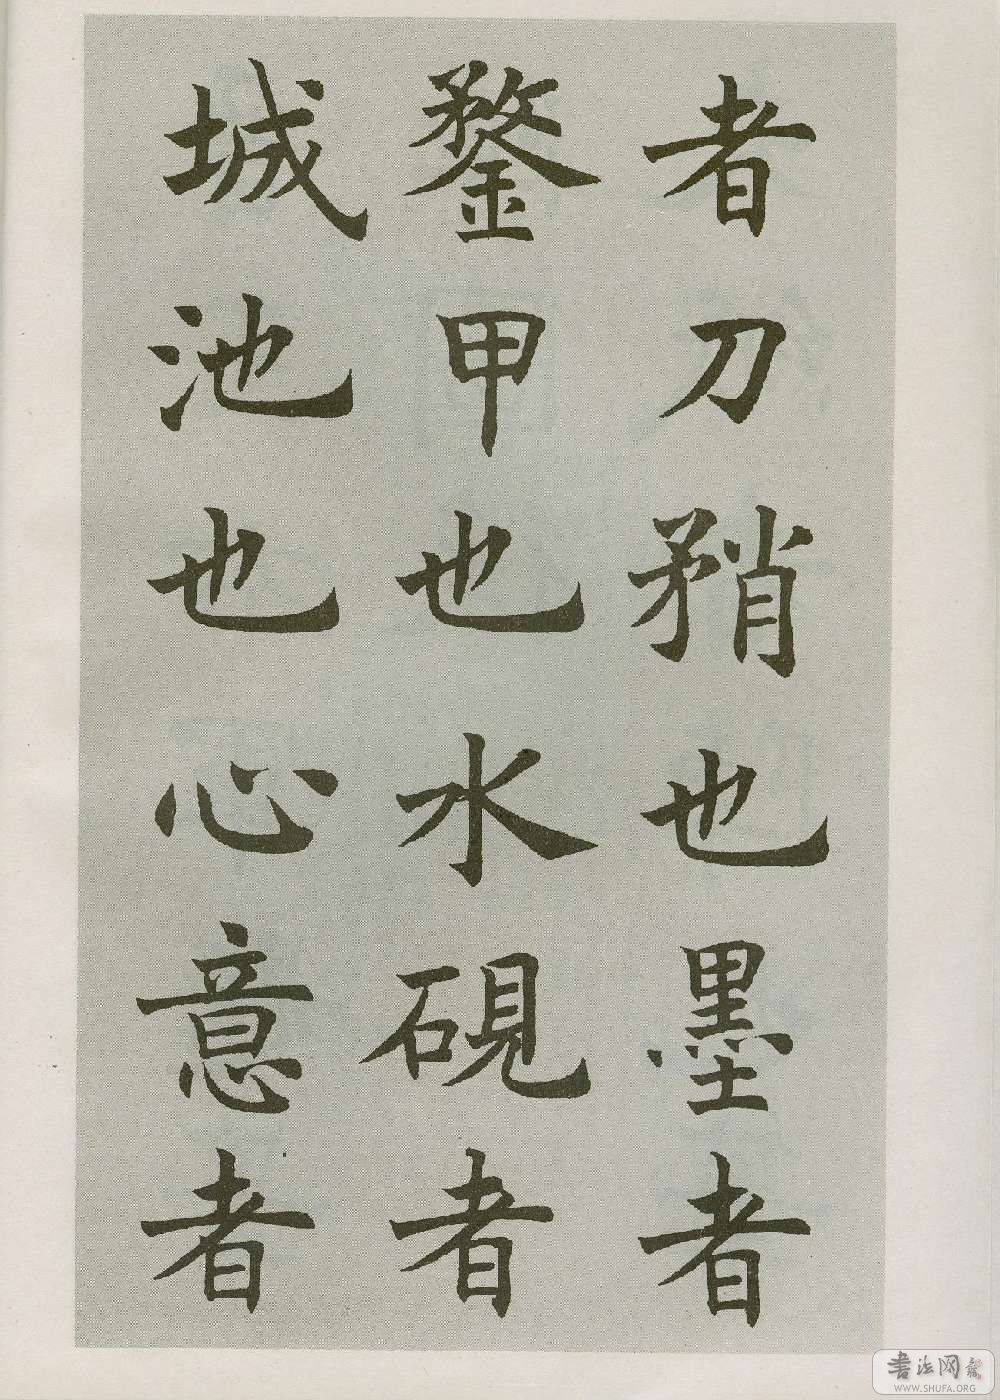 者刀矟也墨者
鍪甲也水硯者
城池也心意者
書法网
WWW.SHUFA.ORG